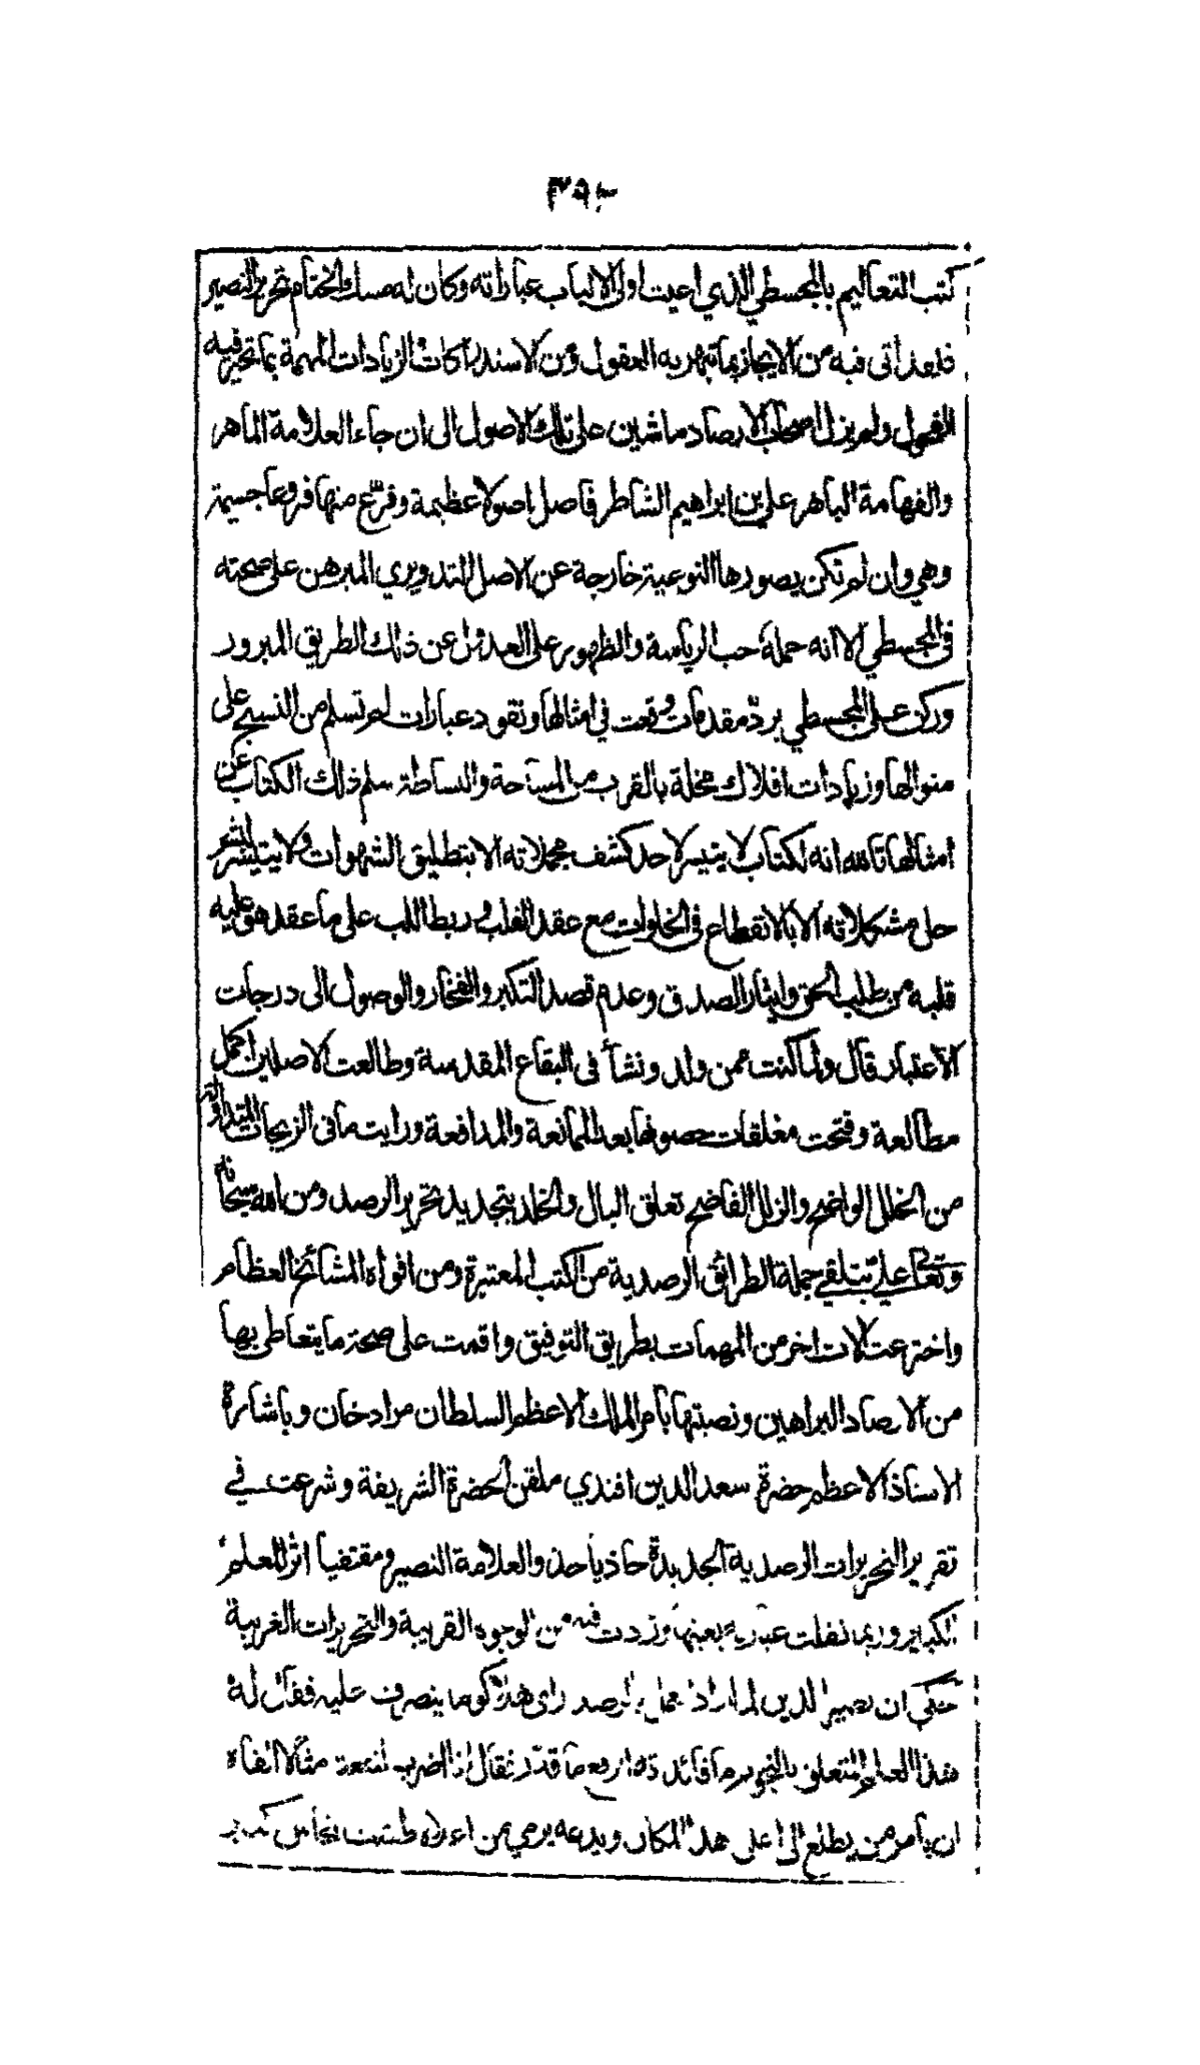 ٣٩٢
كتب التعاليم بالمجسطي الذي اعيت اولى الالباب عباراته وكان له مسك الختام تحرير النصير
فلقد اتى فيه من الايجاز بما تبهر به العقول ومن الاستدراكات والزيادات المهمة بما تحير فيه
الفحول ولم يزل اصحاب الارصاد ماشين على تلك الاصول الى ان جاء العلامة الماهر
والفهامة الباهر علي بن ابراهيم الشاطر فاصل اصولا عظيمة وفرّع منها فروعا جسيمة
وهي وان لم تكن بصورها النوعية خارجة عن الاصل التدويري المبرهن على صحته
في المجسطي الا انه حمله حب الرياسة والظهور على العدول عن ذلك الطريق المبرور
وركن على المجسطي بردّ مقدمات وقعت في امثالها ونقود عبارات لم تسلم من النسيج على
منوالها وزيادات افلاك مخلة بالقرب من المساحة والبساطة سلم ذلك الكتاب عن
امثالها تالله انه لكتاب لا يتيسر لاحد كشف مجملاته الا بتطليق الشهوات ولا يتيسر لبشر
حل مشكلاته الا بالانقطاع في الخلوات مع عقد القلب وربط اللب على ما عقد هو عليه
قلبه من طلب الحق وايثار الصدق وعدم قصد التكبر والفخار والوصول الى درجات
الاعتبار قال ولما كنت ممن ولد ونشأ في البقاع المقدسة وطالعت الاصلين اكمل
مطالعة وفتحت مغلقات حصونها بعد الممانعة والمدافعة ورايت ما في الزيجات المتداولة
من الخلل الواضح والزلل الفاضح تعلق البال والخلد بتجديد تحرير الرصد ومن الله سبحانه
وتعالى علي بتلقي جملة الطرائق الرصدية من الكتب المعتبرة ومن افواه المشائخ العظام
واخترعت الات اخر من المهمات بطريق التوفيق واقمت على صحة ما يتعاطى بها
من الارصاد البراهين ونصبتها بأمر الملك الاعظم السلطان مراد خان وباشارة
الاستاذ الاعظم حضرة سعد الدين افندي ملقن الحضرة الشريفة وشرعت في
تقرير التحريرات الرصدية الجديدة حاذيا حذو العلامة النصير ومقتفيا اثر المعلم
الكبير وربما نقلت عبارته بعينها وزدت فيه من الوجوه القريبة والتحريرات الغريبة
حكي ان نصير الدين لما اراد عمل الرصد راى هلاكو ما ينصرف عليه فقال له
هذا العلم المتعلق بالنجوم ما فائدته ارفع ما قدّر فقال انا اضرب لمنفعته مثالا القان
ان يأمر من يطلع الى اعلى هذا المكان ويدعه يرمي من اعلاه طشت نحاس كبير